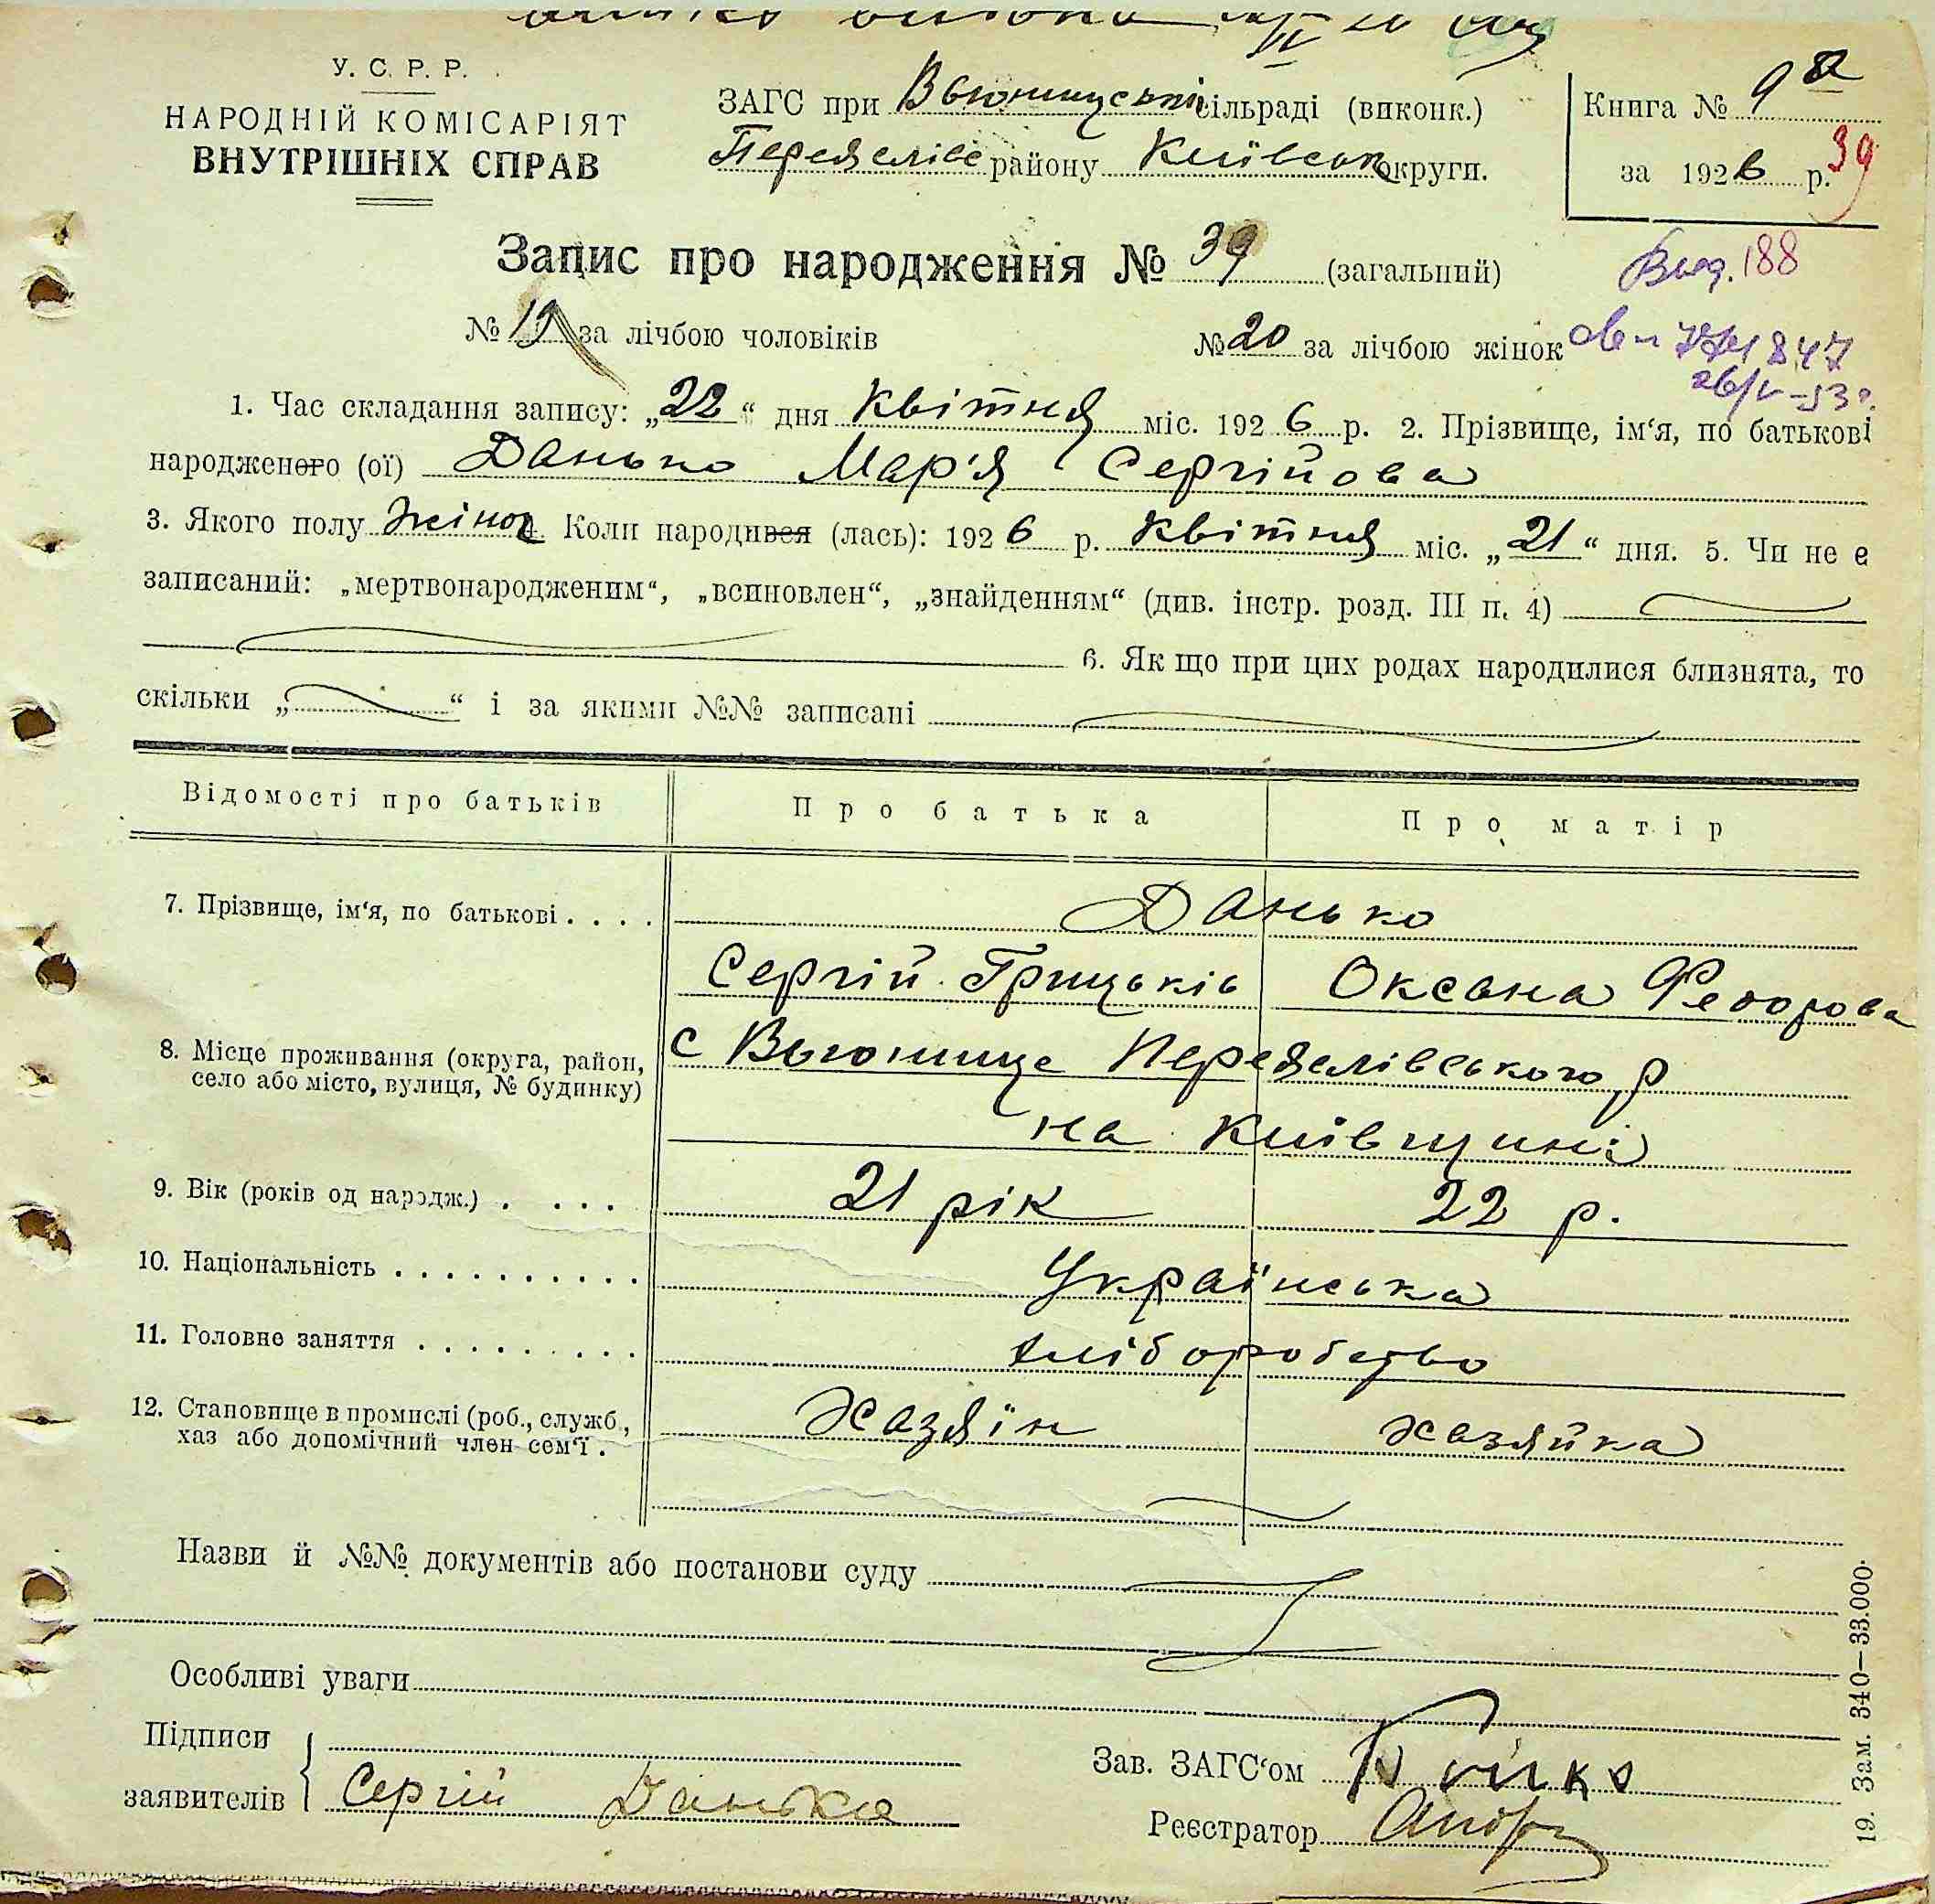 У. С. Р. Р.
НАРОДНІЙ КОМІСАРІЯТ
ВНУТРІШНІХ СПРАВ
ЗАГС при Вьюнищській сільраді (виконк.)
Переяслівс району Київськ округи.
Книга № 9а
за 1926 р. 39
Запис про народження № 39 (загальний)
Выд. 188
№ 19 за лічбою чоловіків
№ 20 за лічбою жінок
847
26/V-53 г.
1. Час складання запису: „22“ дня Квітня міс. 1926 р. 2. Прізвище, ім‘я, по батькові
народженого (ої) Данько Мар'я Сергійова
3. Якого полу жіноч 4. Коли народився (лась): 1926 р. Квітня міс. „21“ дня. 5. Чи не є
записаний: „мертвонародженим“, „всиновлен“, „знайденням“ (див. інстр. розд. III п. 4)
6. Як що при цих родах народилися близнята, то
скільки „ “ і за якими №№ записані
Відомості про батьків
Про батька
Про матір
7. Прізвище, ім‘я, по батькові . . . .
Данько
Сергій Грицьків
Оксана Федорова
8. Місце проживання (округа, район,
село або місто, вулиця, № будинку)
с Вьюнище Переяслівського р
на Київщині
9. Вік (років од народж.) . . . .
21 рік
22 р.
10. Національність . . . . . . . . . .
Українська
11. Головне заняття . . . . . . . . .
хліборобство
12. Становище в промислі (роб., служб.,
хаз або допомічний член сем‘ї .
Хазяїн
хазяйка
Назви й №№ документів або постанови суду
Особливі уваги
Підписи
заявителів
Сергій Данько
Зав. ЗАГС‘ом
Реєстратор
19. Зам. 340—33.000.